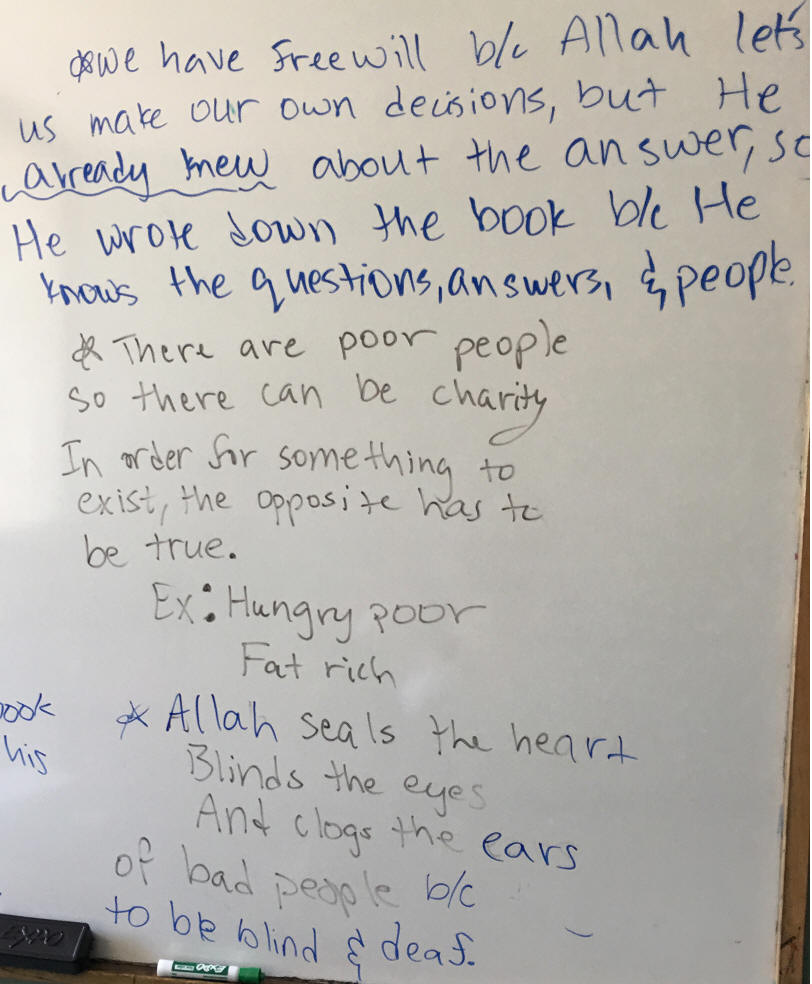 *we have freewill b/c Allah let's
us make our own decisions, but He
already knew about the answer, so
He wrote down the book b/c He
knows the questions, answers, & people.
* There are poor people
so there can be charity
In order for something to
exist, the opposite has to
be true.
Ex: Hungry poor
Fat rich
* Allah seals the heart
Blinds the eyes
And clogs the ears
of bad people b/c
to be blind & deaf.
ook
his
EXPO
EXPO